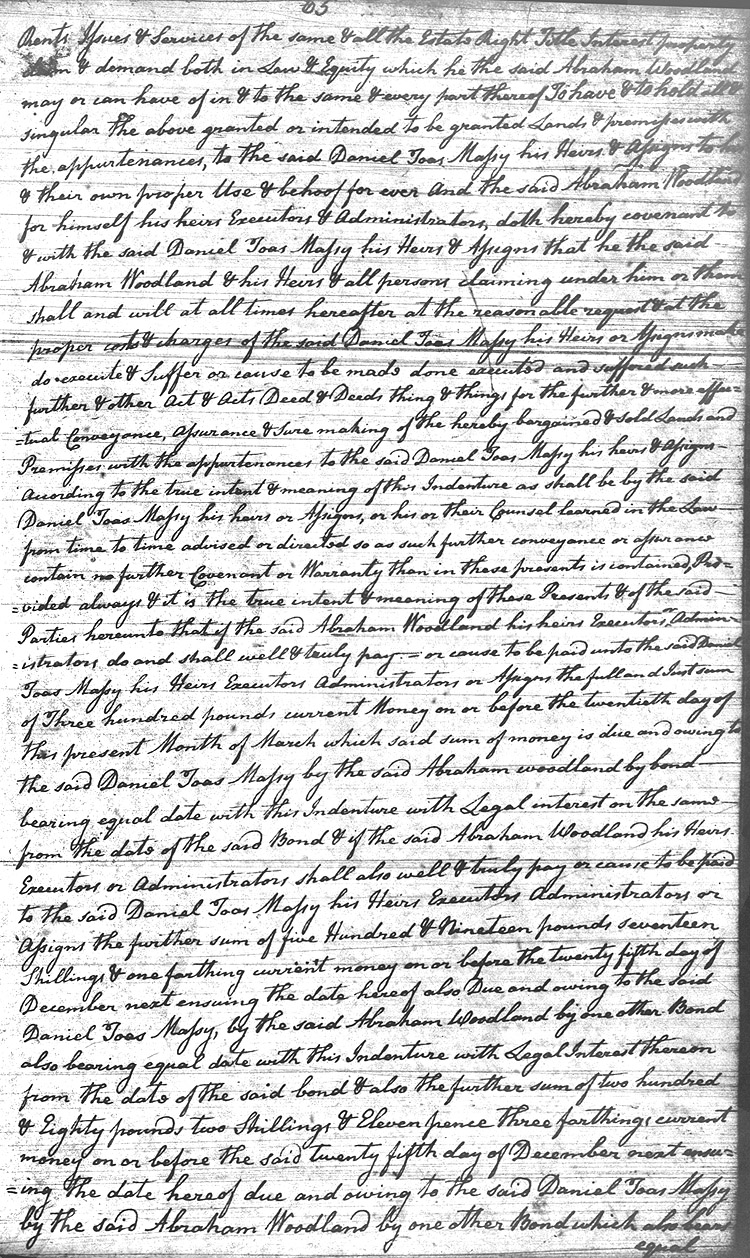 65
Rents Issues & Services of the same & all the Estate Right Title Interest property
& demand both in Law & Equity which he the said Abraham Woodland
may or can have of in & to the same & every part thereof To have & to hold all &
singular the above granted or intended to be granted Lands & premisses with
the appurtenances, to the said Daniel Toas Massy his Heirs & Assigns to
& their own proper Use & behoof for ever And the said Abraham Woodland
for himself his heirs Executors & Administrators, doth hereby covenant to
& with the said Daniel Toas Massy his Heirs & Assigns that he the said
Abraham Woodland & his Heirs & all persons claiming under him or them
shall and will at all times hereafter at the reasonable request & at the
proper costs & charges of the said Daniel Toas Massy his Heirs or Assigns make
do execute & Suffer or cause to be made done executed and suffered such
further & other Act & Acts Deed & Deeds thing & things for the further & more effec=
=tual Conveyance, Assurance & Sure making of the hereby bargained & sold Lands and
Premisses with the appurtenances to the said Daniel Toas Massy his heirs & Assigns
Acording to the true intent & meaning of this Indenture as shall be by the said
Daniel Toas Massy his heirs or Assigns, or his or their Counsel learned in the Law
from time to time advised or directed so as such further conveyance or assurance
contain no further Covenant or Warranty than in these presents is contained, Pro=
=vided always & it is the true intent & meaning of these Presents & of the said
Parties hereunto that if the said Abraham Woodland his heirs Executors or Admin=
=istrators do and shall well & truly pay or cause to be paid unto the said Daniel
Toas Massy his Heirs Executors Administrators or Assigns the full and Just sum
of Three hundred pounds current Money on or before the twentieth day of
this present Month of March which said sum of money is due and owing to
the said Daniel Toas Massy by the said Abraham woodland by bond
bearing equal date with this Indenture with Legal interest on the same
from the date of the said Bond & if the said Abraham Woodland his Heirs
Executors or Administrators shall also well & truly pay or cause to be paid
to the said Daniel Toas Massy his Heirs Executors Administrators or
Assigns the further sum of five Hundred & Nineteen pounds seventeen
Shillings & one farthing current money on or before the twenty fifth day of
December next ensuing the date hereof also Due and owing to the said
Daniel Toas Massy, by the said Abraham Woodland by one other Bond
also bearing equal date with this Indenture with Legal Interest thereon
from the date of the said bond & also the further sum of two hundred
& Eighty pounds two Shillings & Eleven pence three farthings current
money on or before the said twenty fifth day of December next ensu=
=ing the date hereof due and owing to the said Daniel Toas Massy
by the said Abraham Woodland by one other Bond which also bears
equal